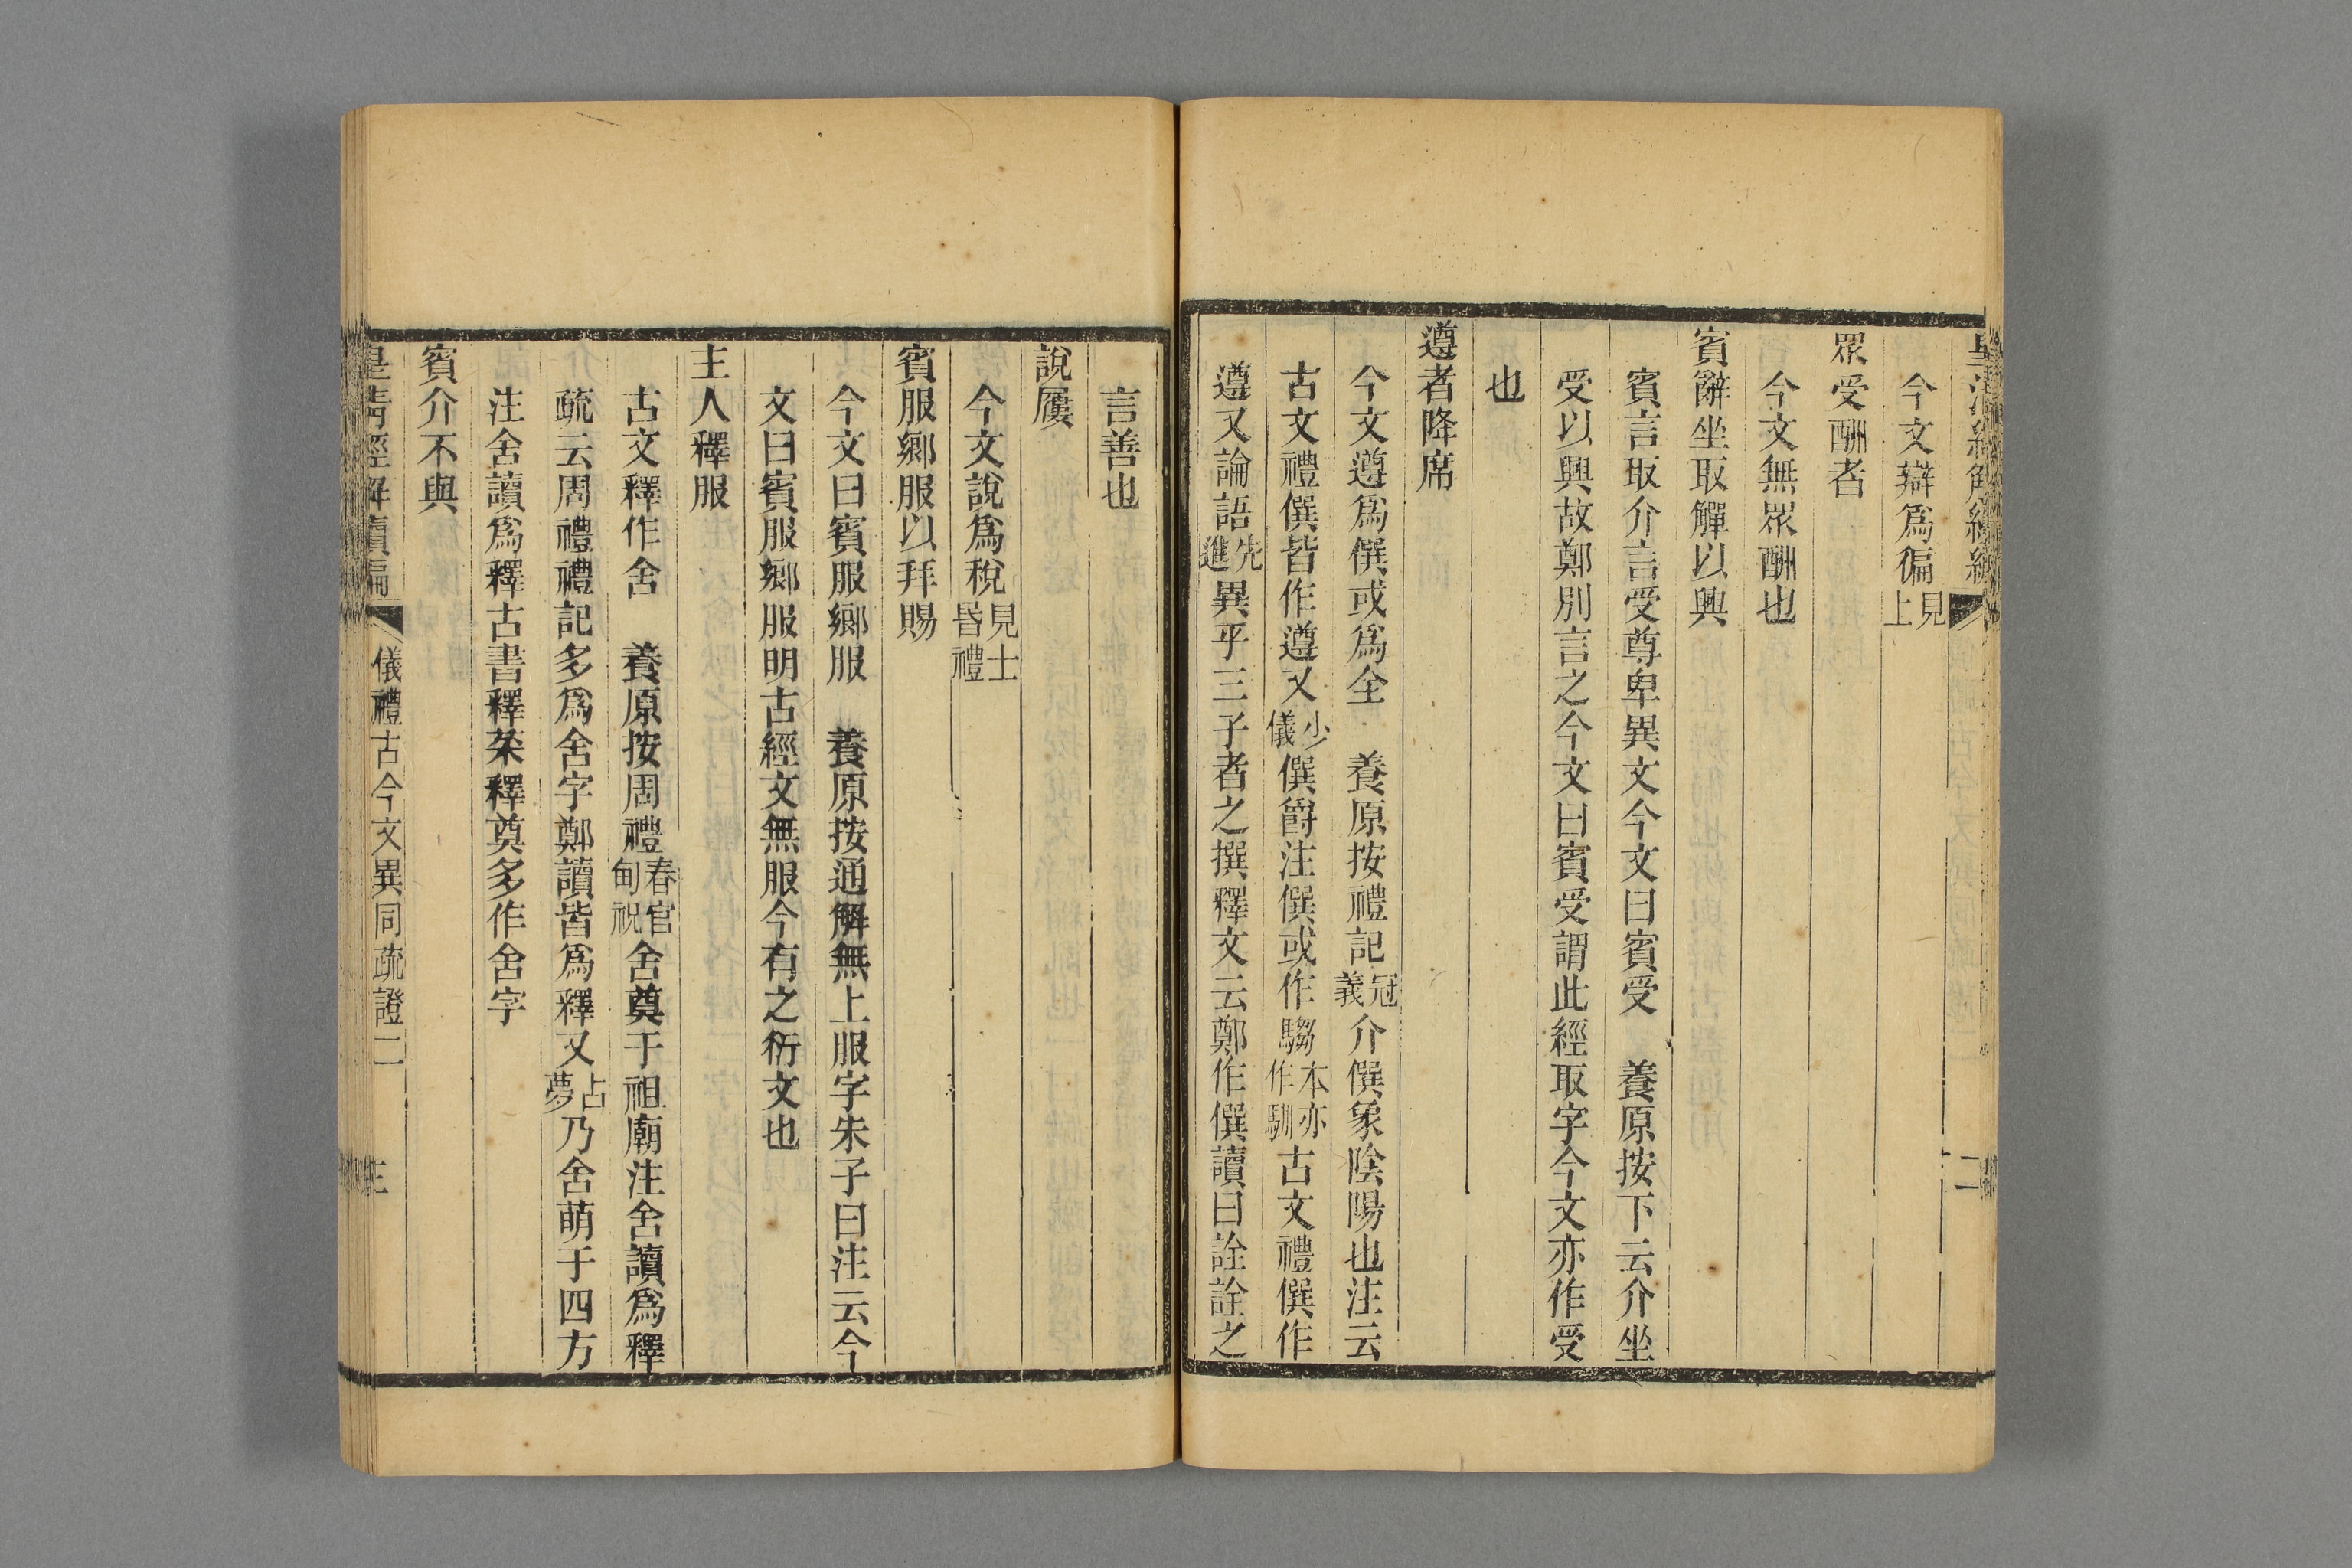 今文辯爲徧見上
眾受酬者
今文無眾酬也
賓辭坐取觶以興
賓言取介言受尊卑異文今文曰賓受　養原按下云介坐
受以興故鄭別言之今文曰賓受謂此經取字今文亦作受
也
遵者降席
今文遵爲僎或爲全　養原按禮記冠義介僎象陰陽也注云
古文禮僎皆作遵又少儀僎爵注僎或作騶本亦作馴古文禮僎作
遵又論語先進異乎三子者之撰釋文云鄭作僎讀曰詮詮之
二
言善也
說屨
今文說爲稅見士昬禮
賓服鄉服以拜賜
今文曰賓服鄉服　養原按通解無上服字朱子曰注云今
文曰賓服鄉服明古經文無服今有之衍文也
主人釋服
古文釋作舍　養原按周禮春官甸祝舍奠于祖廟注舍讀爲釋
疏云周禮禮記多爲舍字鄭讀皆爲釋又占夢乃舍萌于四方
注舍讀爲釋古書釋菜釋奠多作舍字
賓介不與
皇清經解續編　儀禮古今文異同疏證二　三